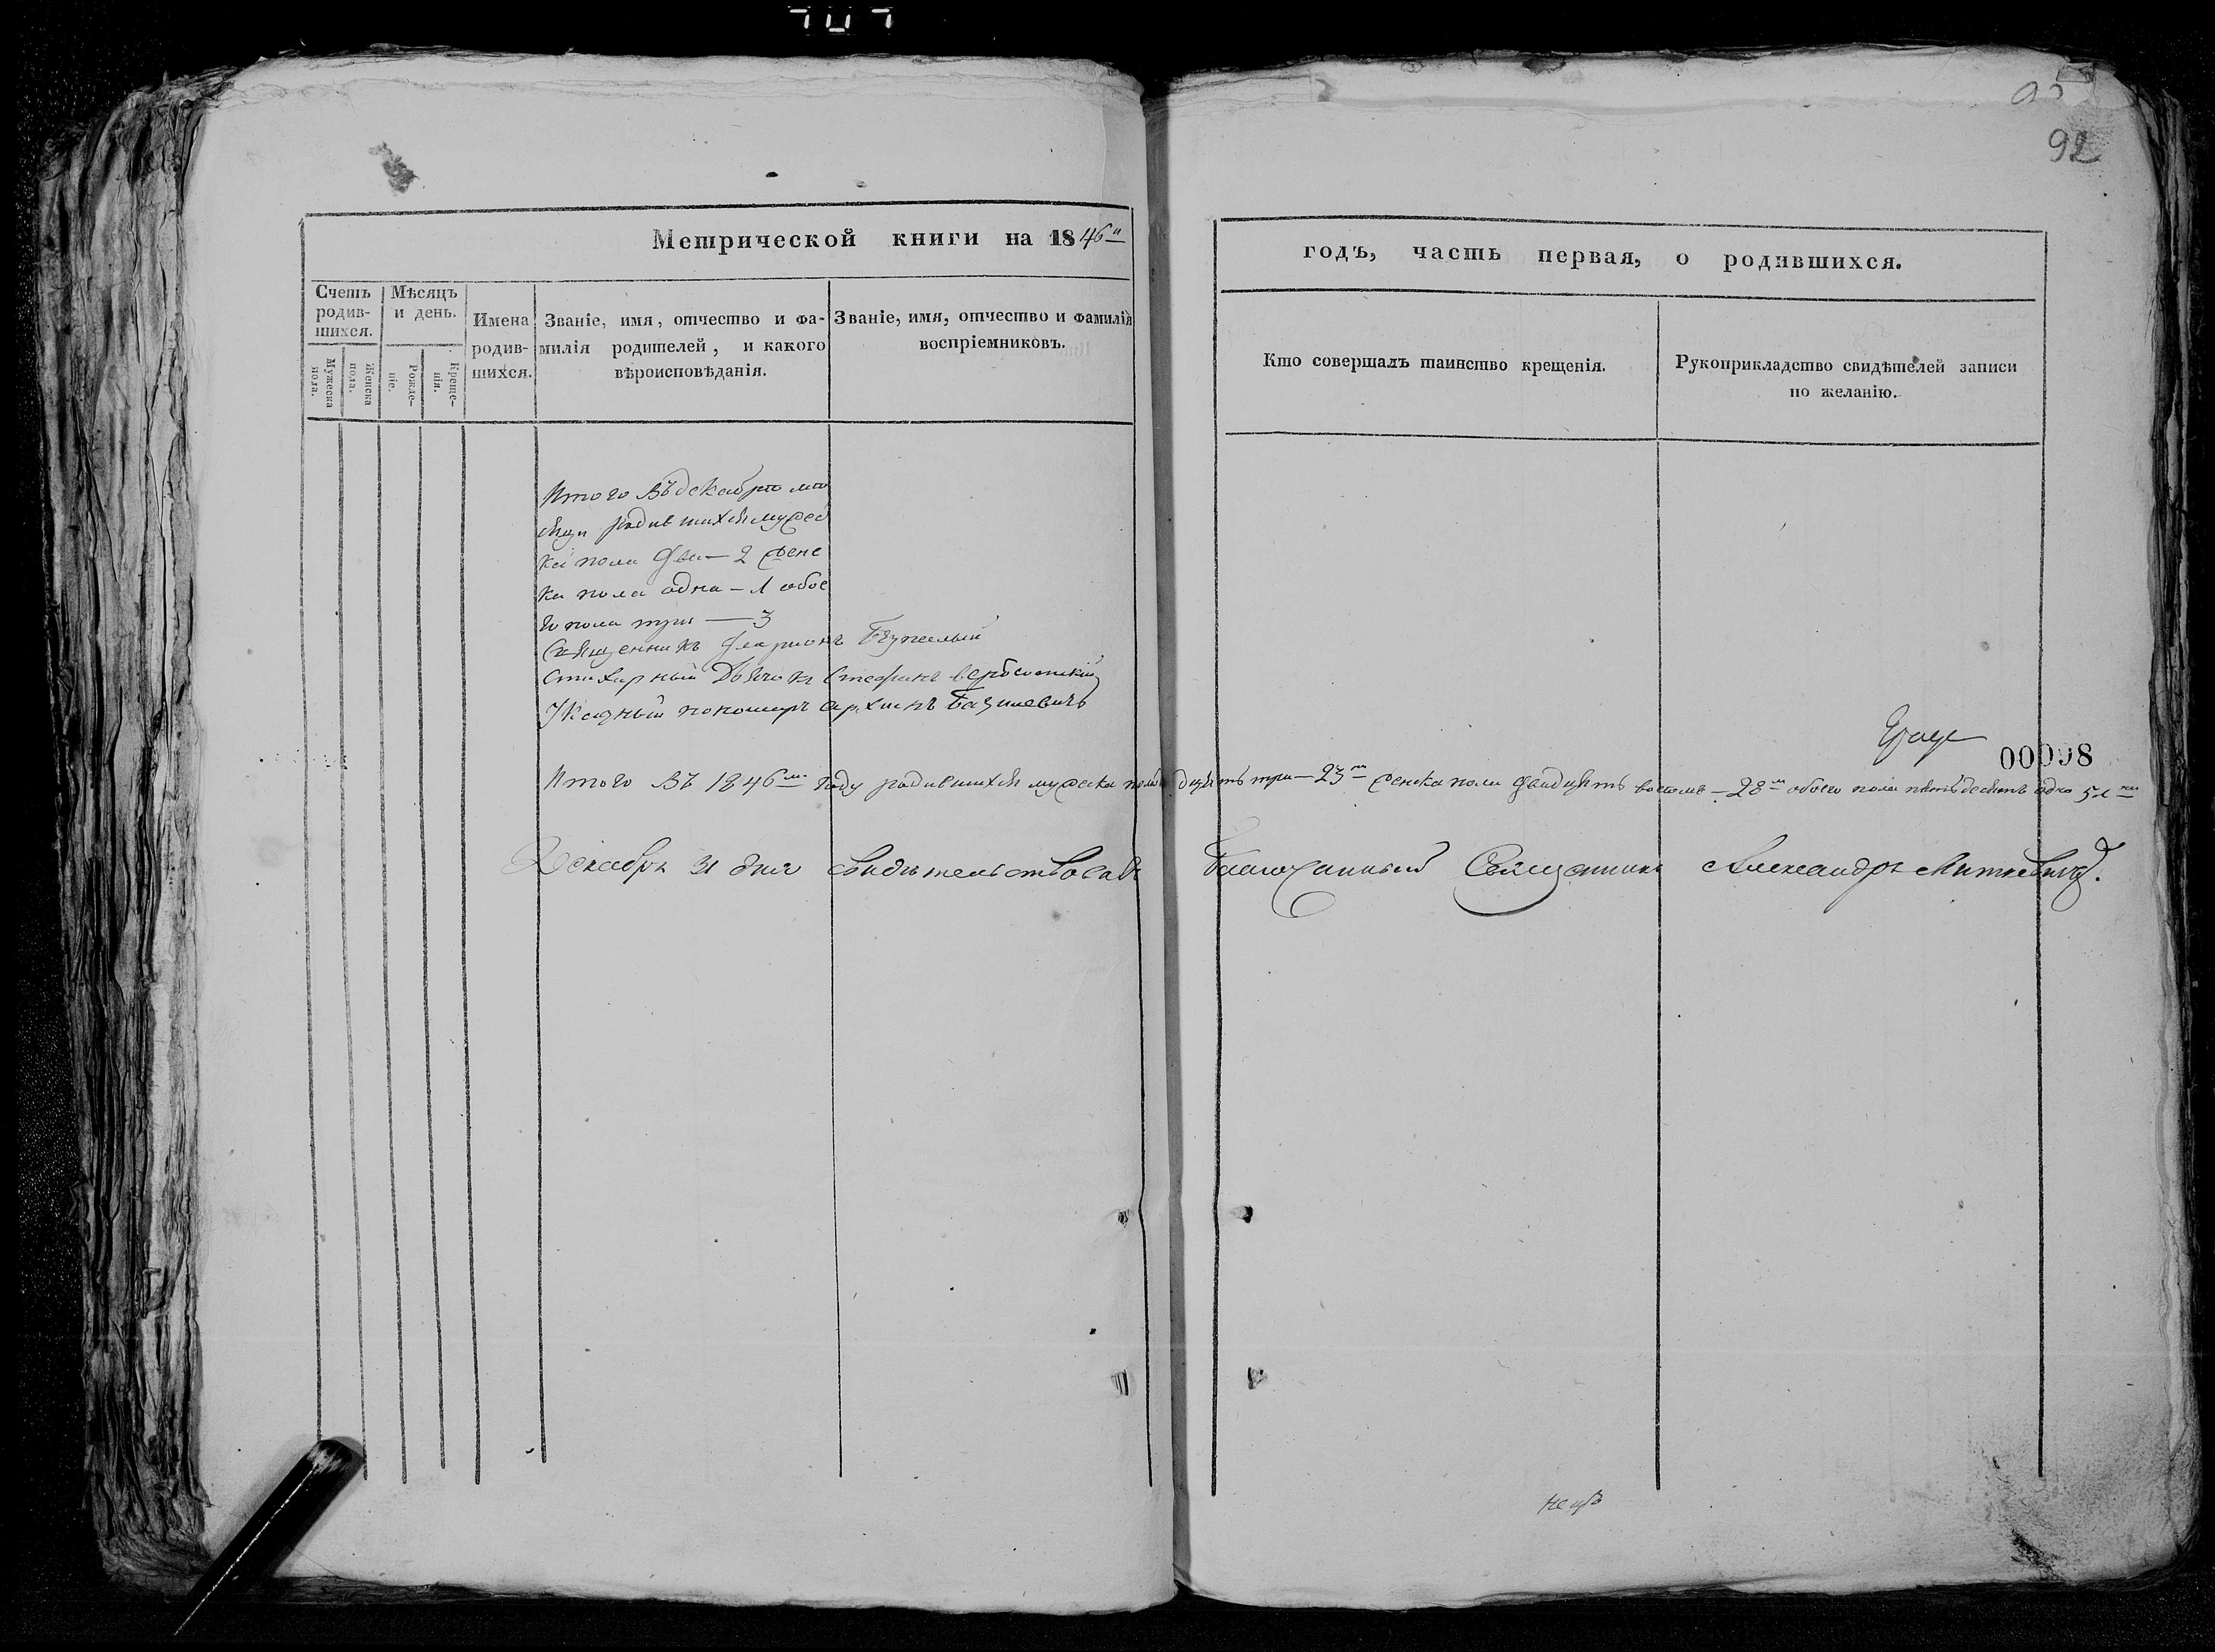 92
Метрической книги на 1846й
годъ, часть первая, о родившихся.
Счетъ родив-шихся.
Мужеска пола.
Женска пола.
Мѣсяцъ и день.
Рожде-ніе.
Креще-нія.
Имена родив-шихся.
Званіе, имя, отчество и фа-милія родителей, и какого вѣроисповѣданія.
Званіе, имя, отчество и фамилія воспріемниковъ.
Кто совершалъ таинство крещенія.
Рукоприкладство свидѣтелей записи по желанію.
Итого Въ декабрѣ мѣ
сяцѣ родившихся мужес
ка пола два — 2 женс
ка пола одна — 1 обое
го пола три — 3
Священникъ Иларионъ
Стихарный Дьячокъ Стефанъ Вербовский
Указный пономарь Архипъ Базилевичъ
00098
Итого Въ 1846м году родившихся мужеска пола дцять три — 23 женска пола двадцять восемь — 28 обоего пола пятьдесятъ одна 51
Декабря 31 дня Свидѣтельствовалъ Благочинный Священникъ Александръ Миткевичъ.